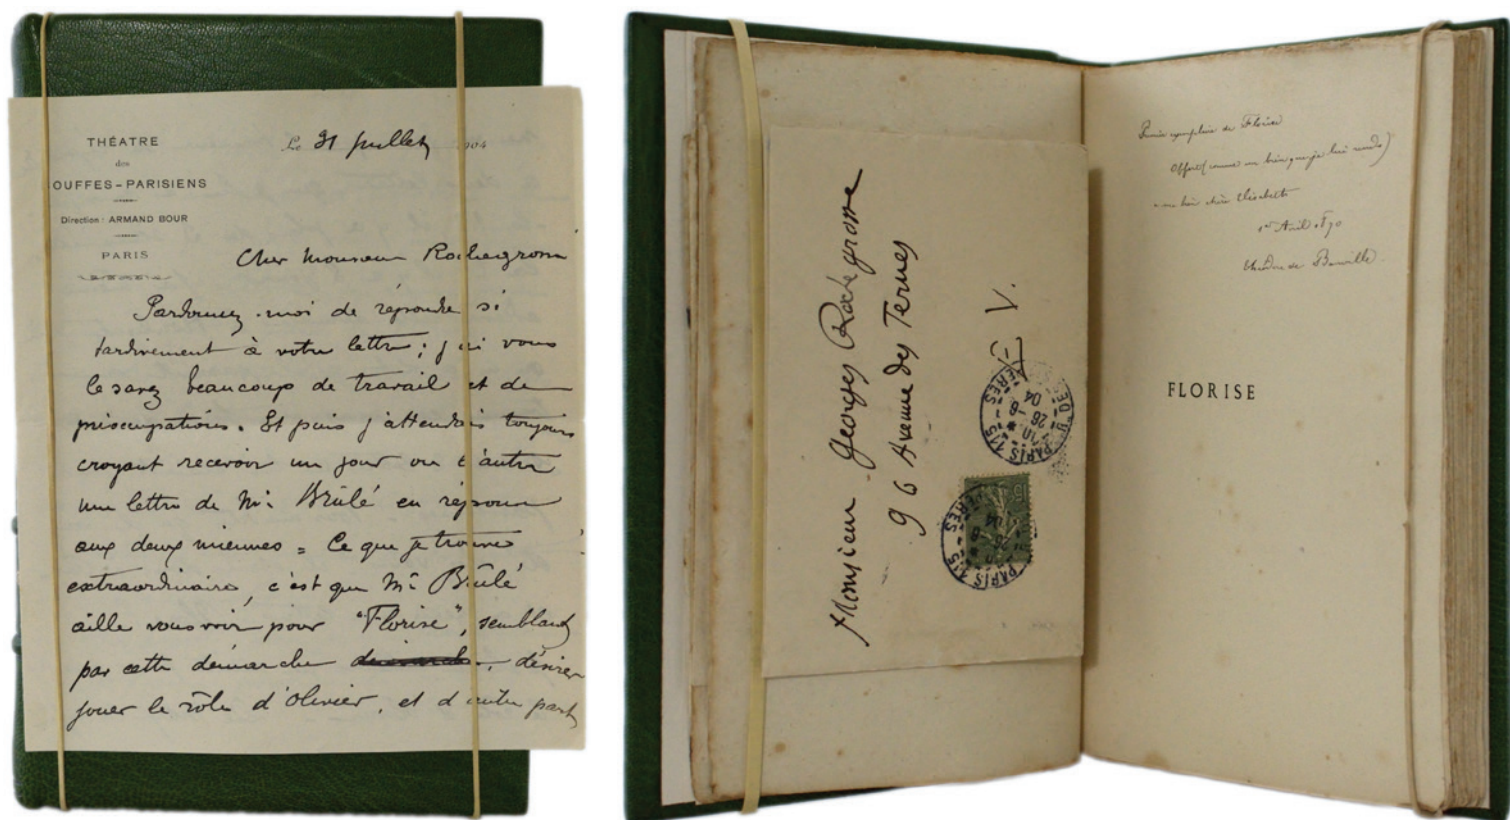 THÉATRE
des
OUFFES-PARISIENS
Direction : ARMAND BOUR
PARIS
Le 31 juillet 1904
Cher Monsieur Rochegrosse
Pardonnez-moi de répondre si
tardivement à votre lettre ; j'ai vous
le savez beaucoup de travail et de
préoccupations. Et puis j'attendais toujours
croyant recevoir un jour ou l'autre
une lettre de Mr Brûlé en réponse
aux deux miennes = Ce que je trouve
extraordinaire, c'est que Mr Brûlé
aille vous voir pour "Florise", semblant
par cette démarche désirer
jouer le rôle d'Olivier, et d'autre part
Monsieur Georges Rochegrosse
96 Avenue des Ternes
V.
PARIS 115
26 -8
04
PARIS 115
26 -8
04
Premier exemplaire de Florise
Offert (comme un bien que je lui rends)
à ma bien chère Elisabeth
1er Avril 1870
Théodore de Banville.
FLORISE